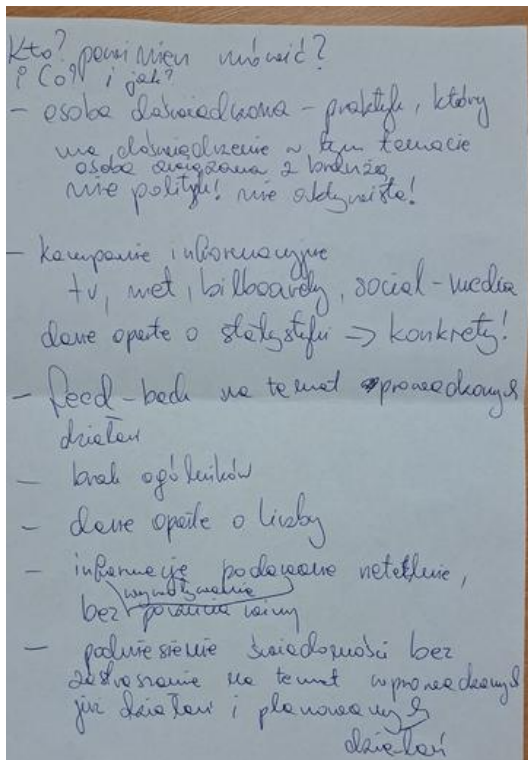 Kto? powinien mówić?
i Co? i jak?
- osoba doświadczona - praktyk, który
ma doświadczenie w tym temacie
osoba związana z branżą
nie polityk! nie aktywista!
- kampanie informacyjne
tv, net, bilboardy, social-media
dane oparte o statystyki => konkrety!
- feed-back na temat prowadzonych
działań
- brak ogólników
- dane oparte o liczby
- informacje podawane rzetelnie,
bez
- podniesienie świadomości bez
zastraszania na temat wprowadzanych
już działań i planowanych
działań